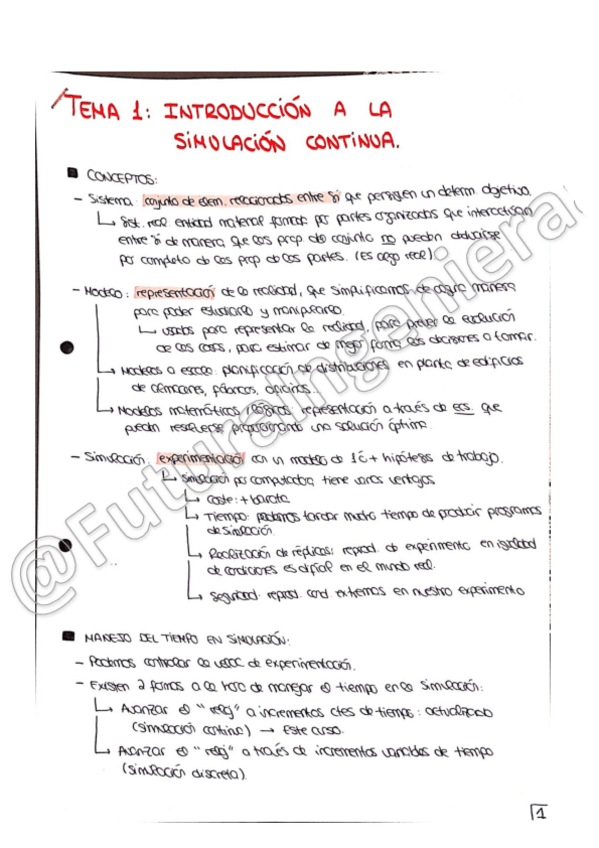 TEMA 1: INTRODUCCIÓN A LA
SIMULACIÓN CONTINUA.
CONCEPTOS:
- Sistema: conjunto de elem. relacionados entre sí que persiguen un determ. objetivo.
↳ Sist. real: entidad material formada por partes organizadas que interactúan
entre sí de manera que las prop del conjunto no pueden deducirse
por completo de las prop de las partes. (es algo real).
- Modelo: representación de la realidad, que simplificamos de alguna manera
para poder estudiarlo y manipularlo.
↳ usados para representar la realidad, para prever la evolución
de las cosas, para estimar de mejor forma las decisiones a tomar.
↳ Modelos a escala: planificación de distribuciones en planta de edificios
de almacenes, fábricas, oficinas...
↳ Modelos matemáticos / lógicos: representación a través de ecs. que
pueden resolverse proporcionando una solución óptima.
- Simulación: experimentación con un modelo de la + hipótesis de trabajo.
↳ Simulación por computador, tiene varias ventajas
↳ Coste: + barata
↳ Tiempo: podemos tardar mucho tiempo de producir programas
de simulación.
↳ Realización de réplicas: reprod. de experimento en igualdad
de condiciones es difícil en el mundo real.
↳ Seguridad: reprod. cond. extremas en nuestro experimento
MANEJO DEL TIEMPO EN SIMULACIÓN:
- Podemos controlar la veloc de experimentación.
- Existen 2 formas a la hora de manejar el tiempo en la simulación:
↳ Avanzar el "reloj" a incrementos ctes de tiempo: actualizado
(simulación continua) → Este curso.
↳ Avanzar el "reloj" a través de incrementos variables de tiempo
(simulación discreta).
1
@FuturaIngeniera